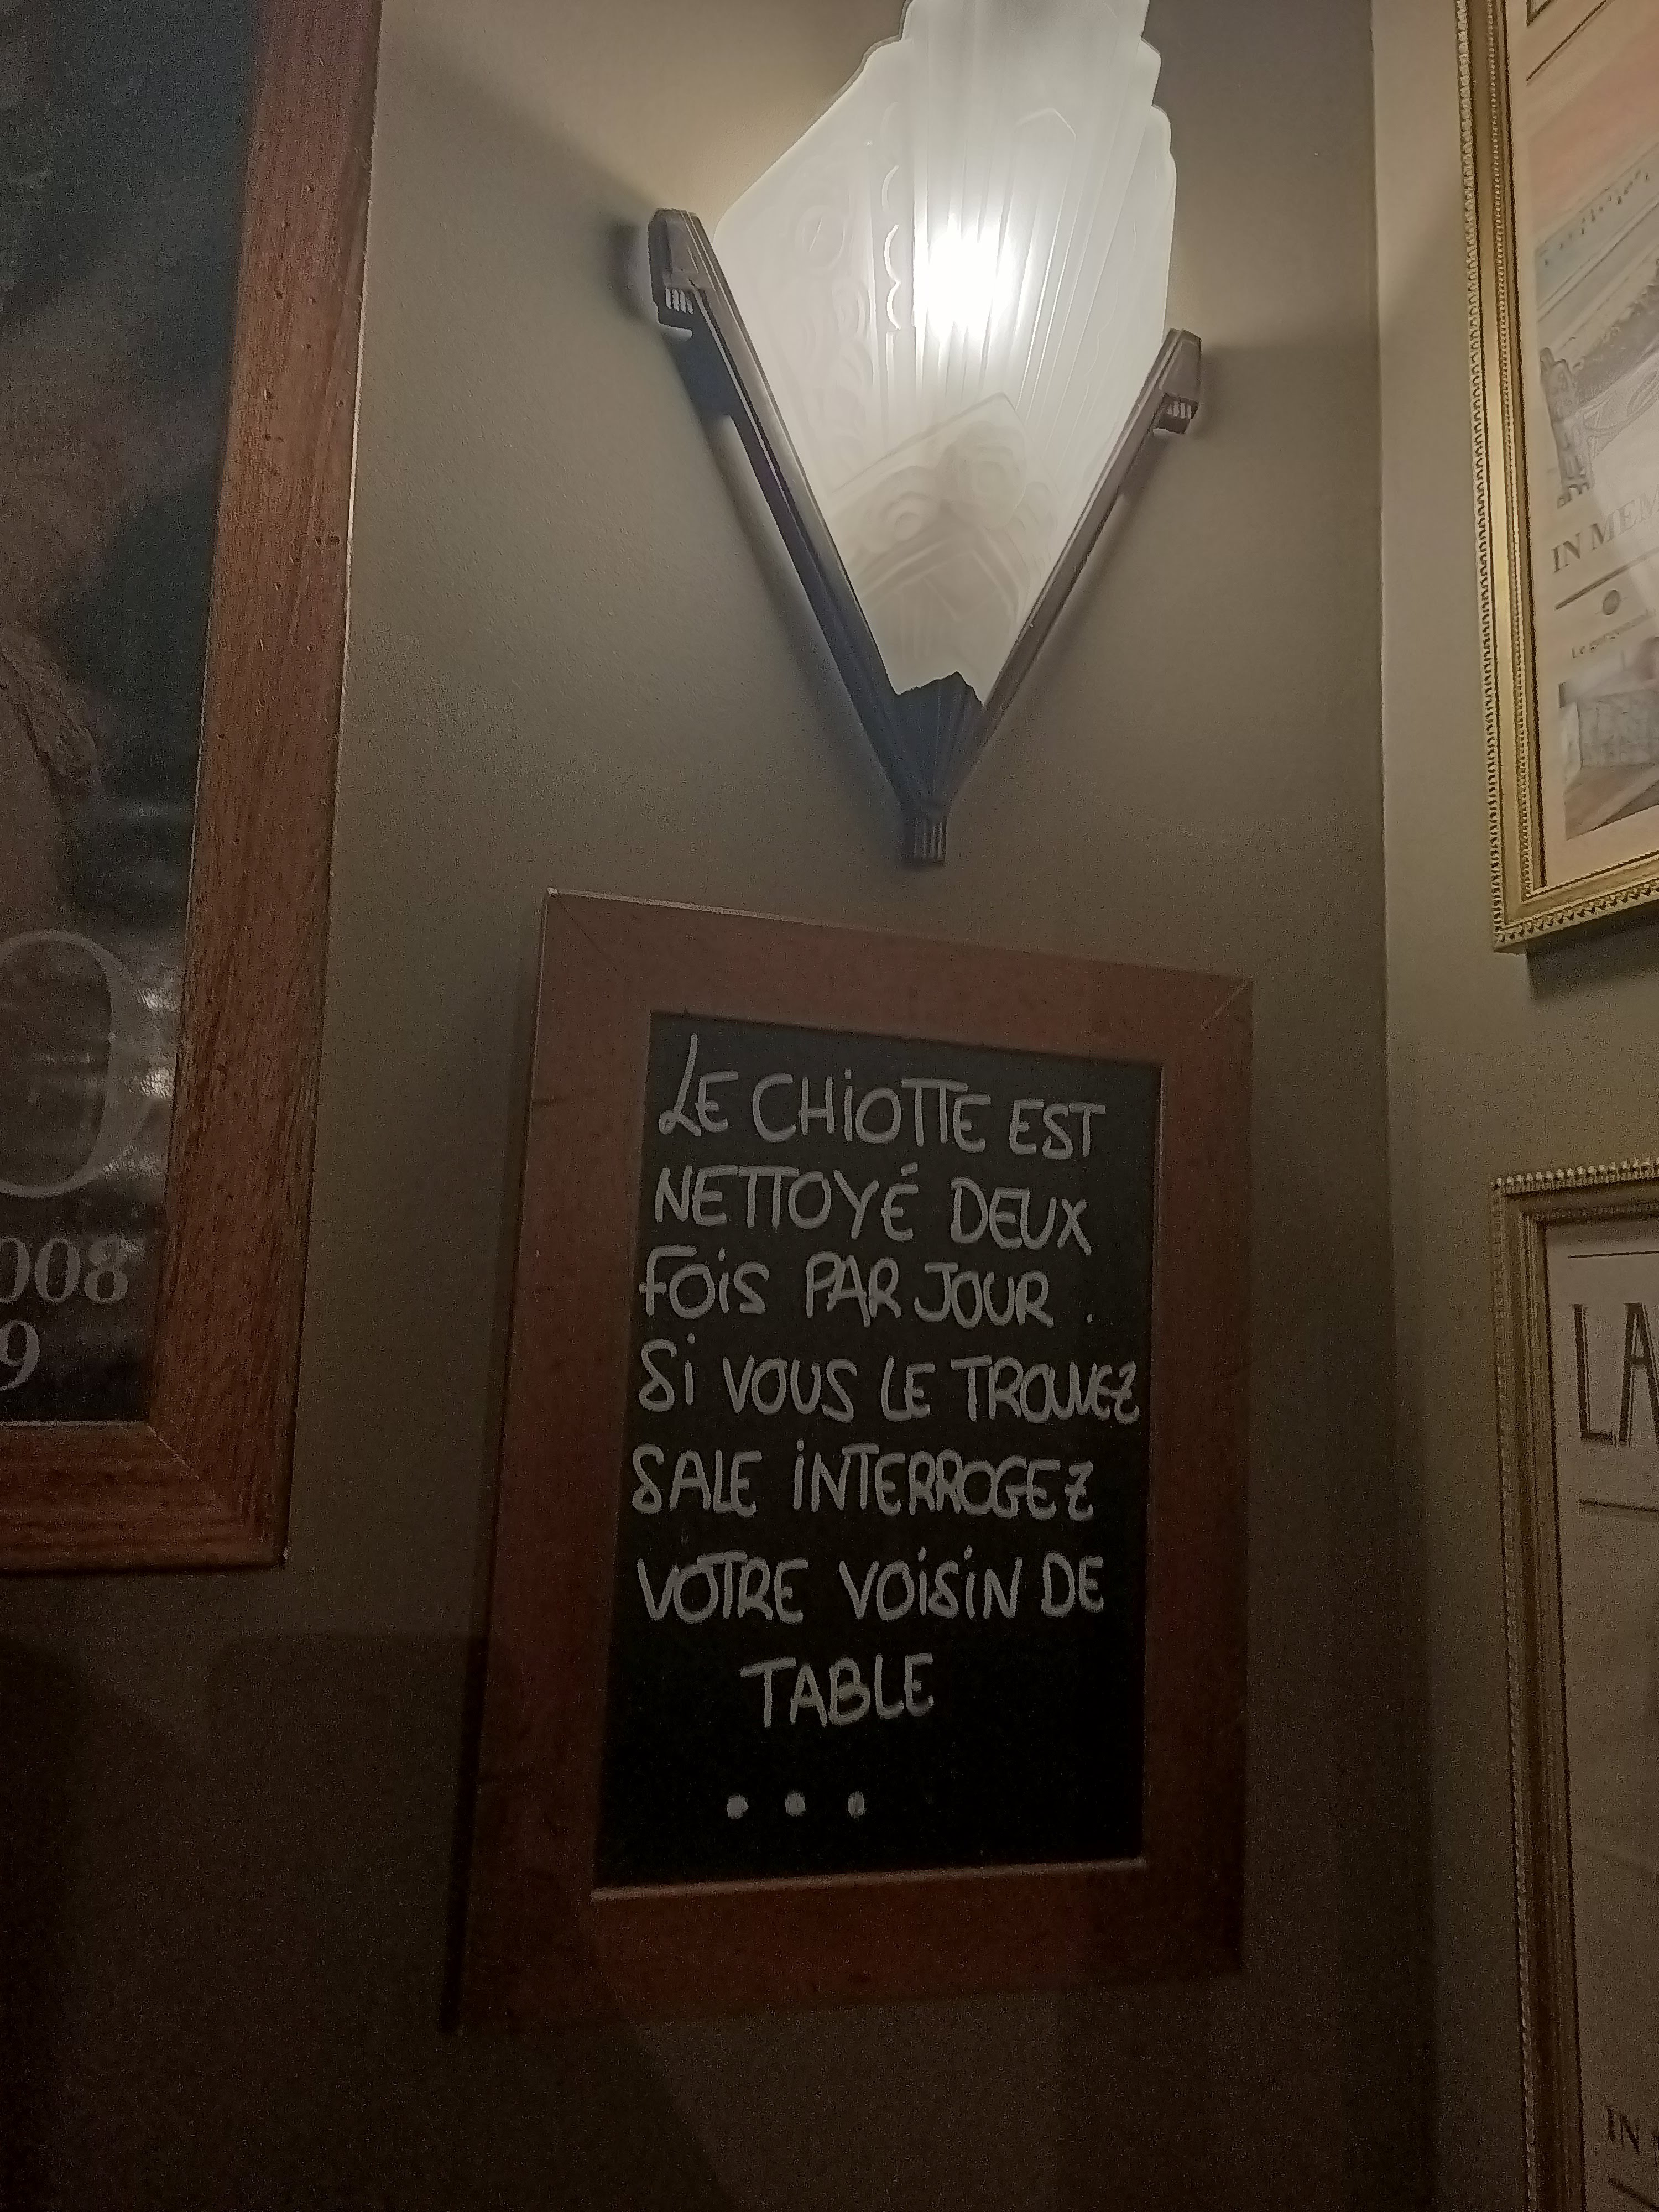 LE CHIOTTE EST
NETTOYÉ DEUX
FOIS PAR JOUR .
SI VOUS LE TROUVEZ
SALE INTERROGEZ
VOTRE VOISIN DE
TABLE
...
O
008
9
IN MEM
LA
IN